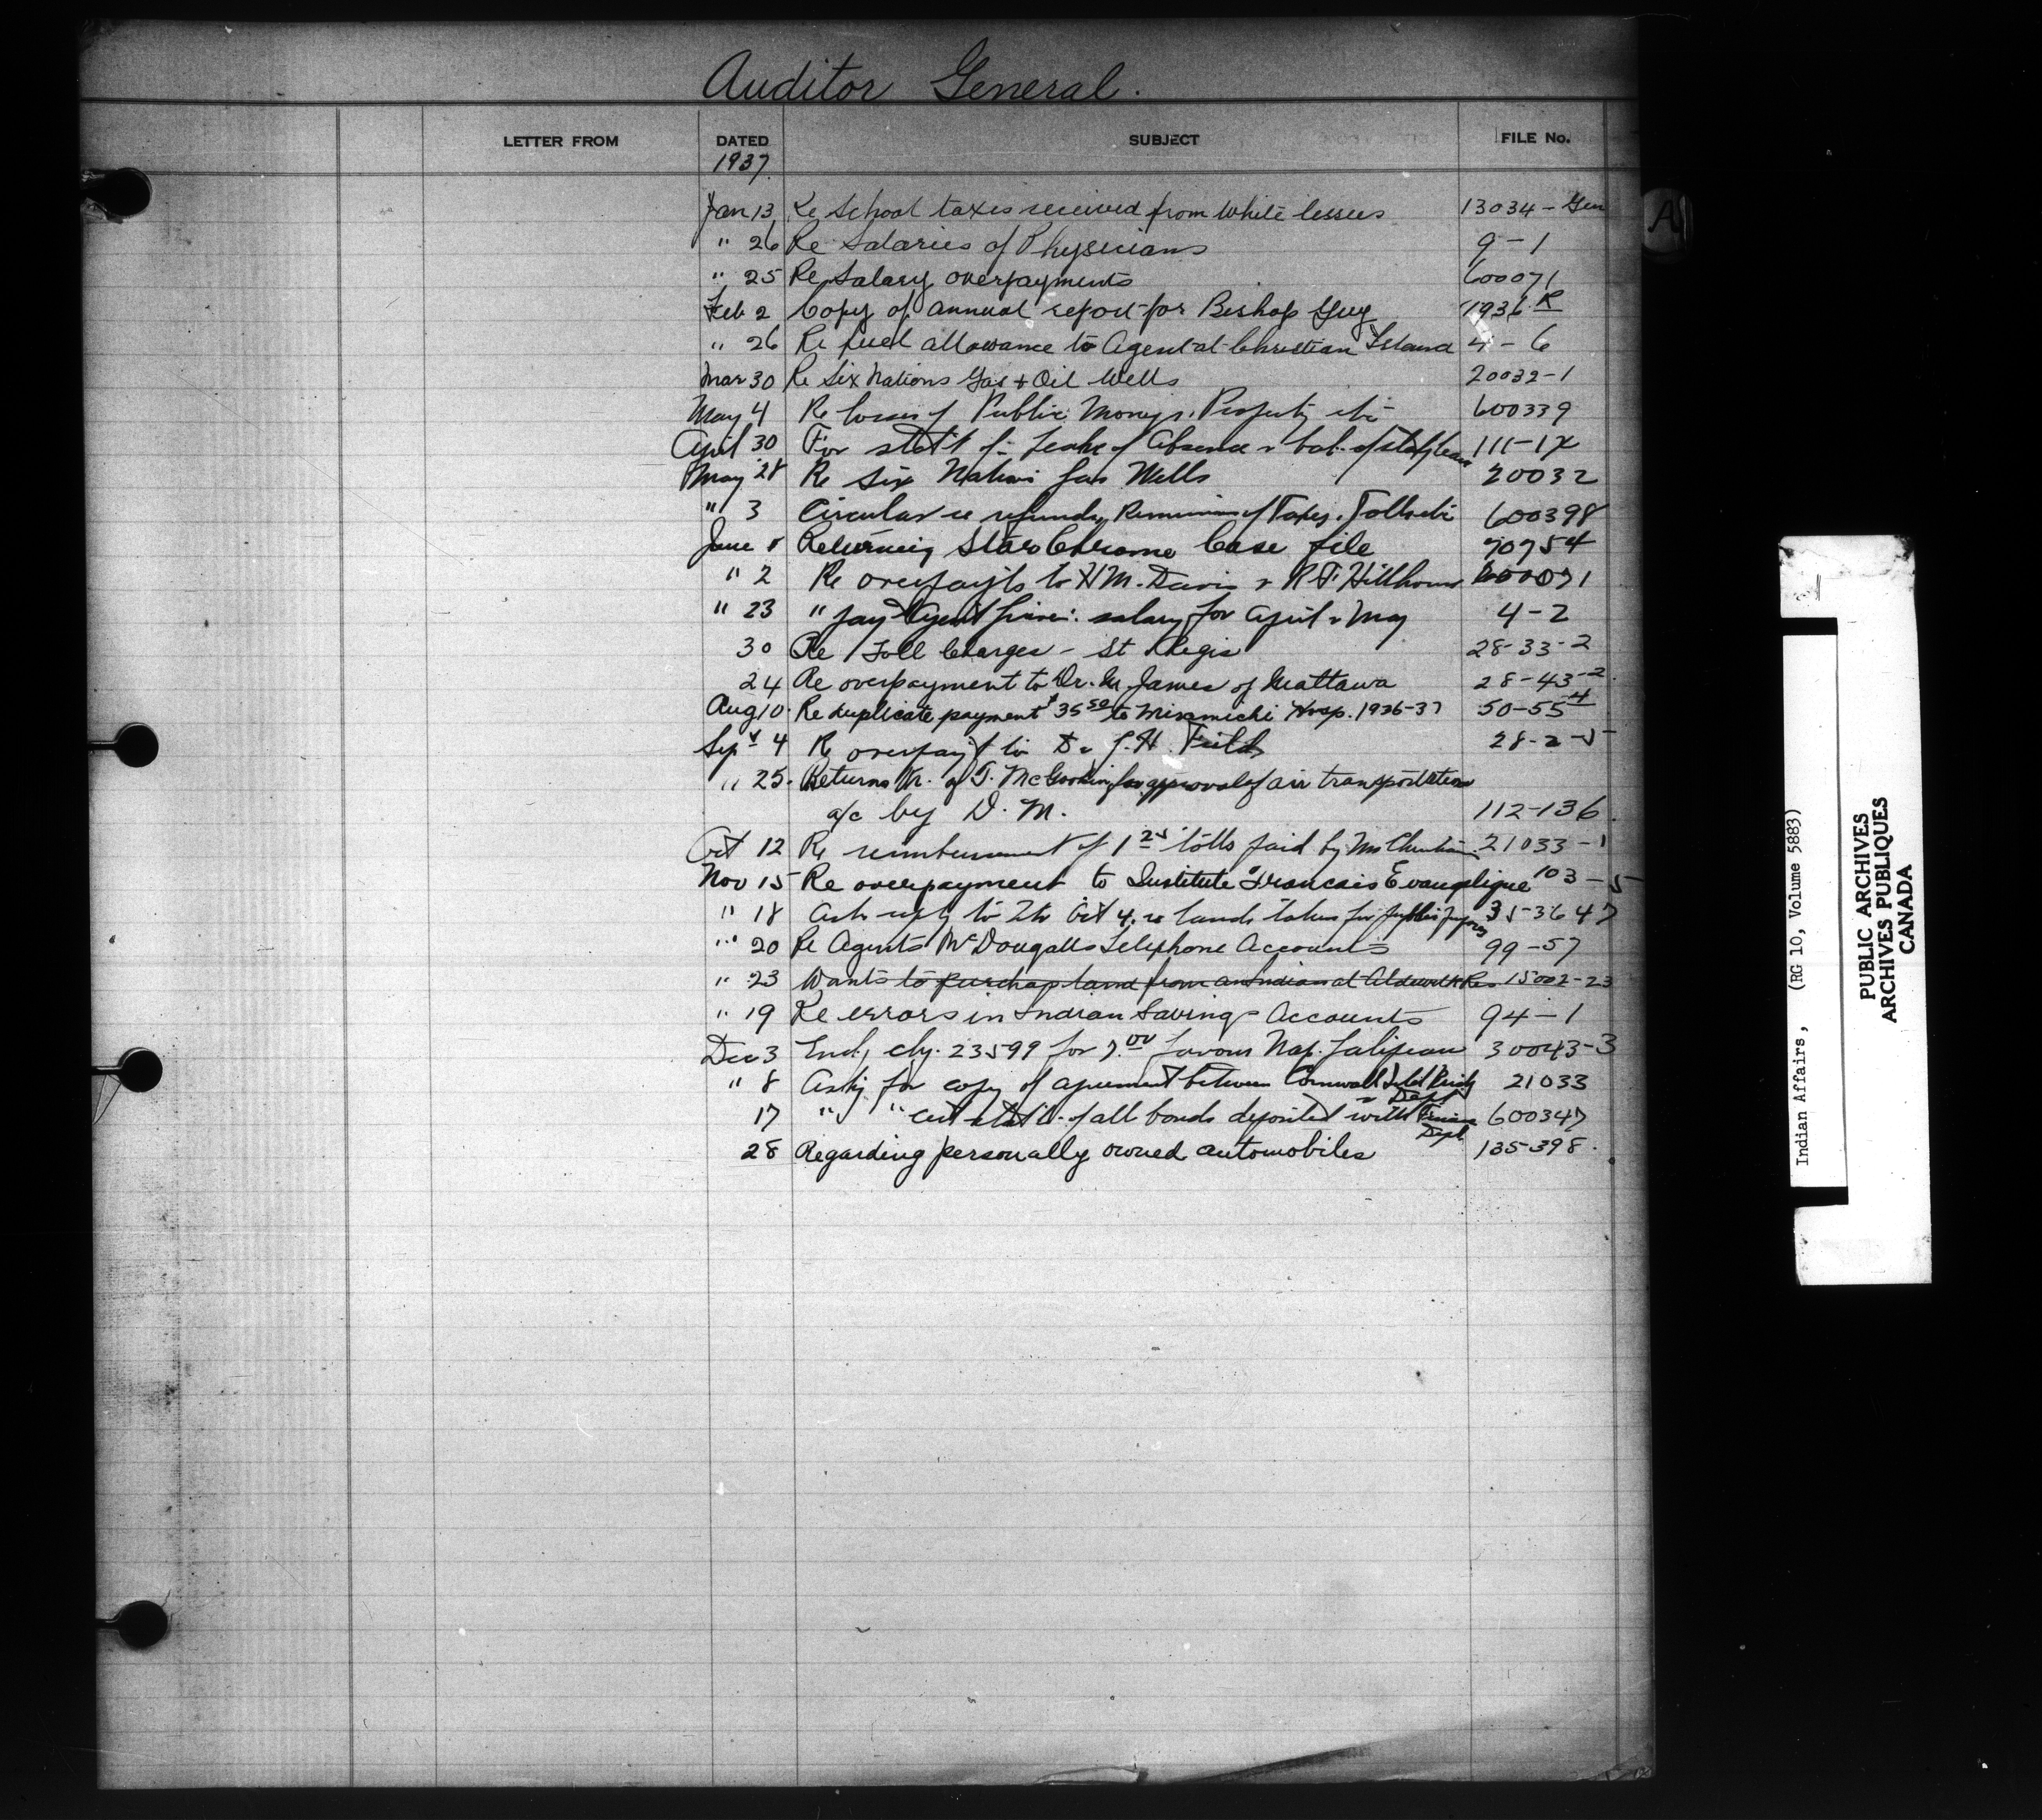 Auditor General.
LETTER FROM DATED SUBJECT FILE No.
1937.
Jan 13 Re School taxes received from White lessees 13034 - Gen
" 26 Re Salaries of Physicians 9-1
" 25 Re Salary overpayments 600071
Feb 2 Copy of annual report for Bishop Guy 1936 R
" 26 Re fuel allowance to Agent at Christian Island 4-6
Mar 30 Re Six Nations Gas + Oil Wells 20032-1
May 4 Re losses of Public Moneys, Property etc 600339
April 30 For stat't of Leave of Absence & of 111-1
May 28 Re Six Nations Gas Wells 20032
" 3 Circular re refunds, Remission of Taxes, Tolls etc 600398
June 8 Returning Star Chrome Case file 70754
" 2 Re overpay'ts to H M. Davis & R. F. Hillhouse 600071
" 23 " pay Agent salary for April & May 4-2
30 Re Toll Charges - St Regis 28-33-2
24 Re overpayment to Dr. James of Mattawa 28-43-2
Aug 10. Re duplicate payment $35 50 to Miramichi Hosp. 1936-37 50-55 4
Sept 4 Re overpay't to Dr J. H. Field 28-2-5
" 25. Returns of T. for approval of air transportation
a/c by D. M. 112-136
Oct 12 Re reimbursement of 1 25 tolls paid by 21033-1
Nov 15 Re overpayment to Institute Francais Evangelique 103-5
" 18 Ask reply to ltr Oct 4, re lands taken for public purposes 35-3647
" 20 Re Agents McDougalls Telephone Accounts 99-57
" 23 Wants to purchase land from an Indian at Res 15002-23
" 19 Re errors in Indian Savings Accounts 94-1
Dec 3 Encl, chq. 23599 for 7.00 favour Nap. Galipeau 30043-3
" 8 Ask'g for copy of agreement between Cornwall Bridge 21033
& Dept
17 " " stat't of all bonds deposited with Finance 600347
Dept
28 Regarding personally owned automobiles 135-398.
A
Indian Affairs, (RG 10, Volume 5883)
PUBLIC ARCHIVES
ARCHIVES PUBLIQUES
CANADA